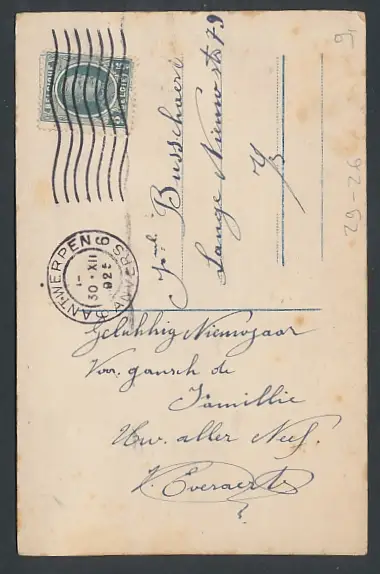 BELGIQUE
BELGIË
ANTWERPEN 6 ANVERS
1-
30·XII
1925
Busschaert
Lange Nieuwstr 79
Gelukkig Nieuwjaar
Voor gansch de
Famillie
Uw. aller Neef.
Everaerts
29-26